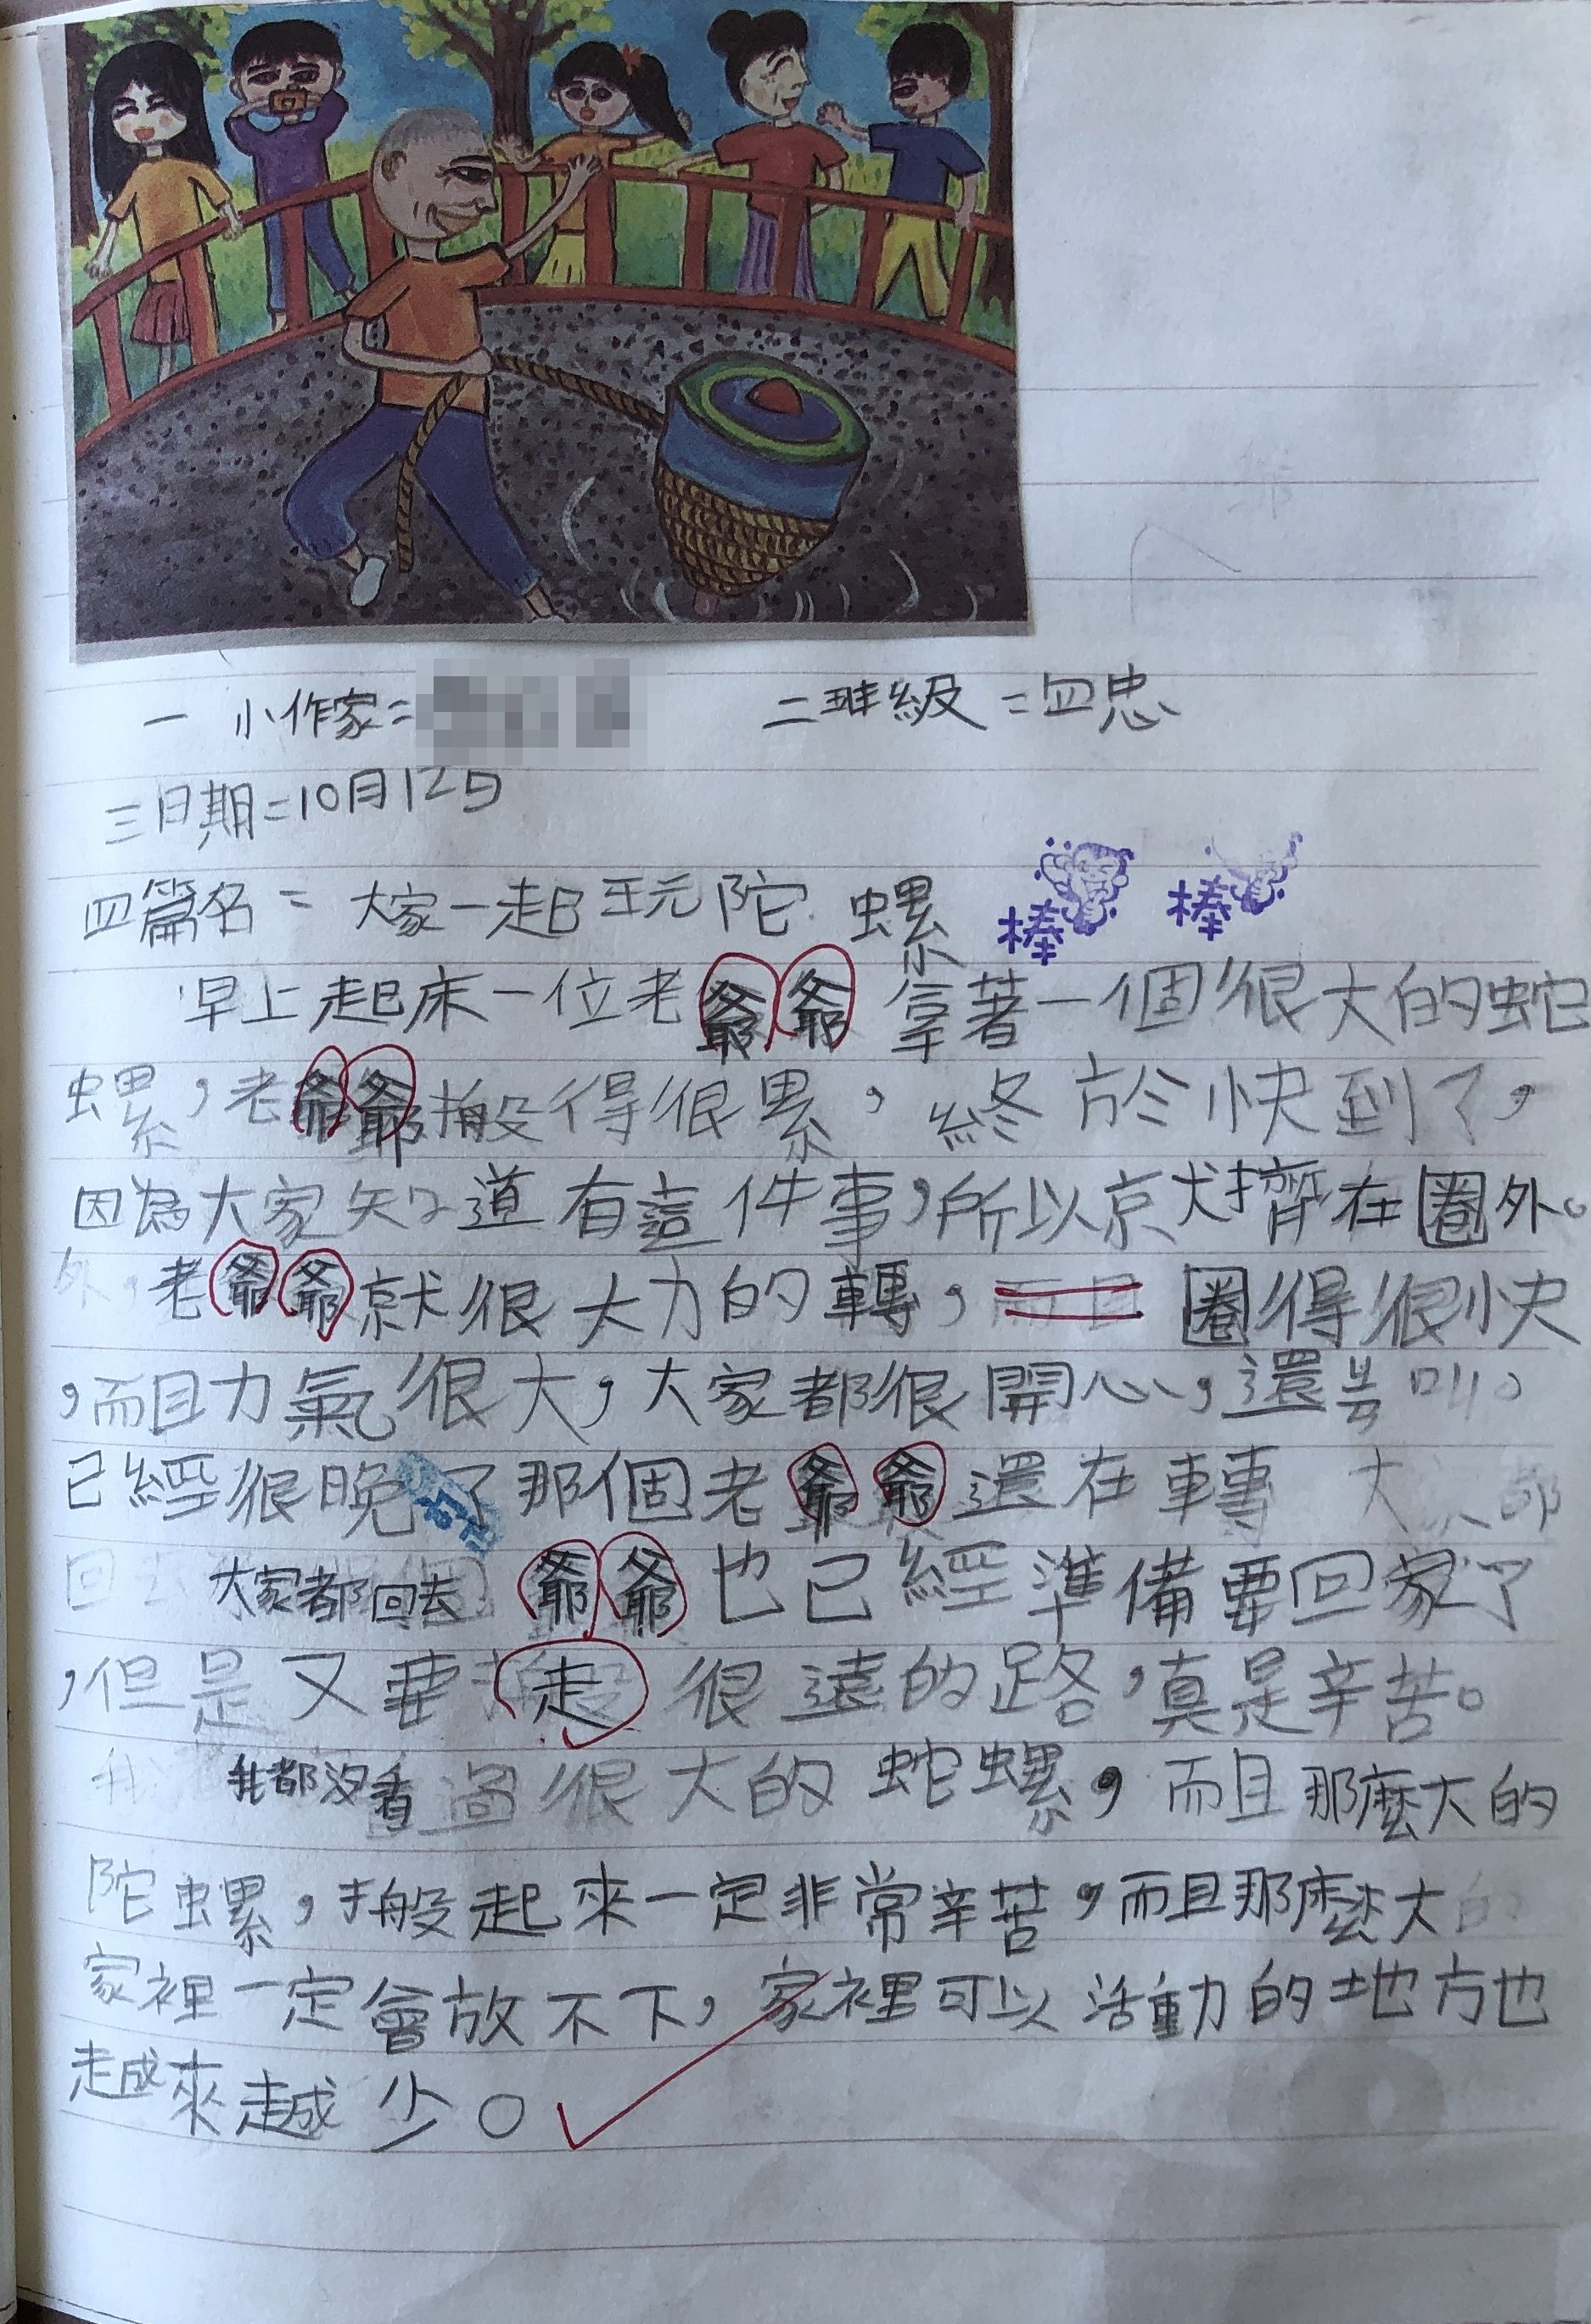 一 小作家=
二班級=四忠
三日期=10月12日
四篇名= 大家一起玩陀螺
棒 棒
早上起床一位老爺爺拿著一個很大的蛇
螺,老爺爺搬得很累,終於快到了,
因為大家知道有這件事,所以就擠在圈外。
外,老爺爺就很大力的轉,而且圈得很快
,而且力氣很大,大家都很開心,還尖叫。
已經很晚了那個老爺爺還在轉 大家都
回去 大家都回去 爺爺也已經準備要回家了
,但是又要走很遠的路,真是辛苦。
我 我都沒看過很大的蛇螺,而且那麼大的
陀螺,搬起來一定非常辛苦,而且那麼大的
家裡一定會放不下,家裡可以活動的地方也
越來越少。